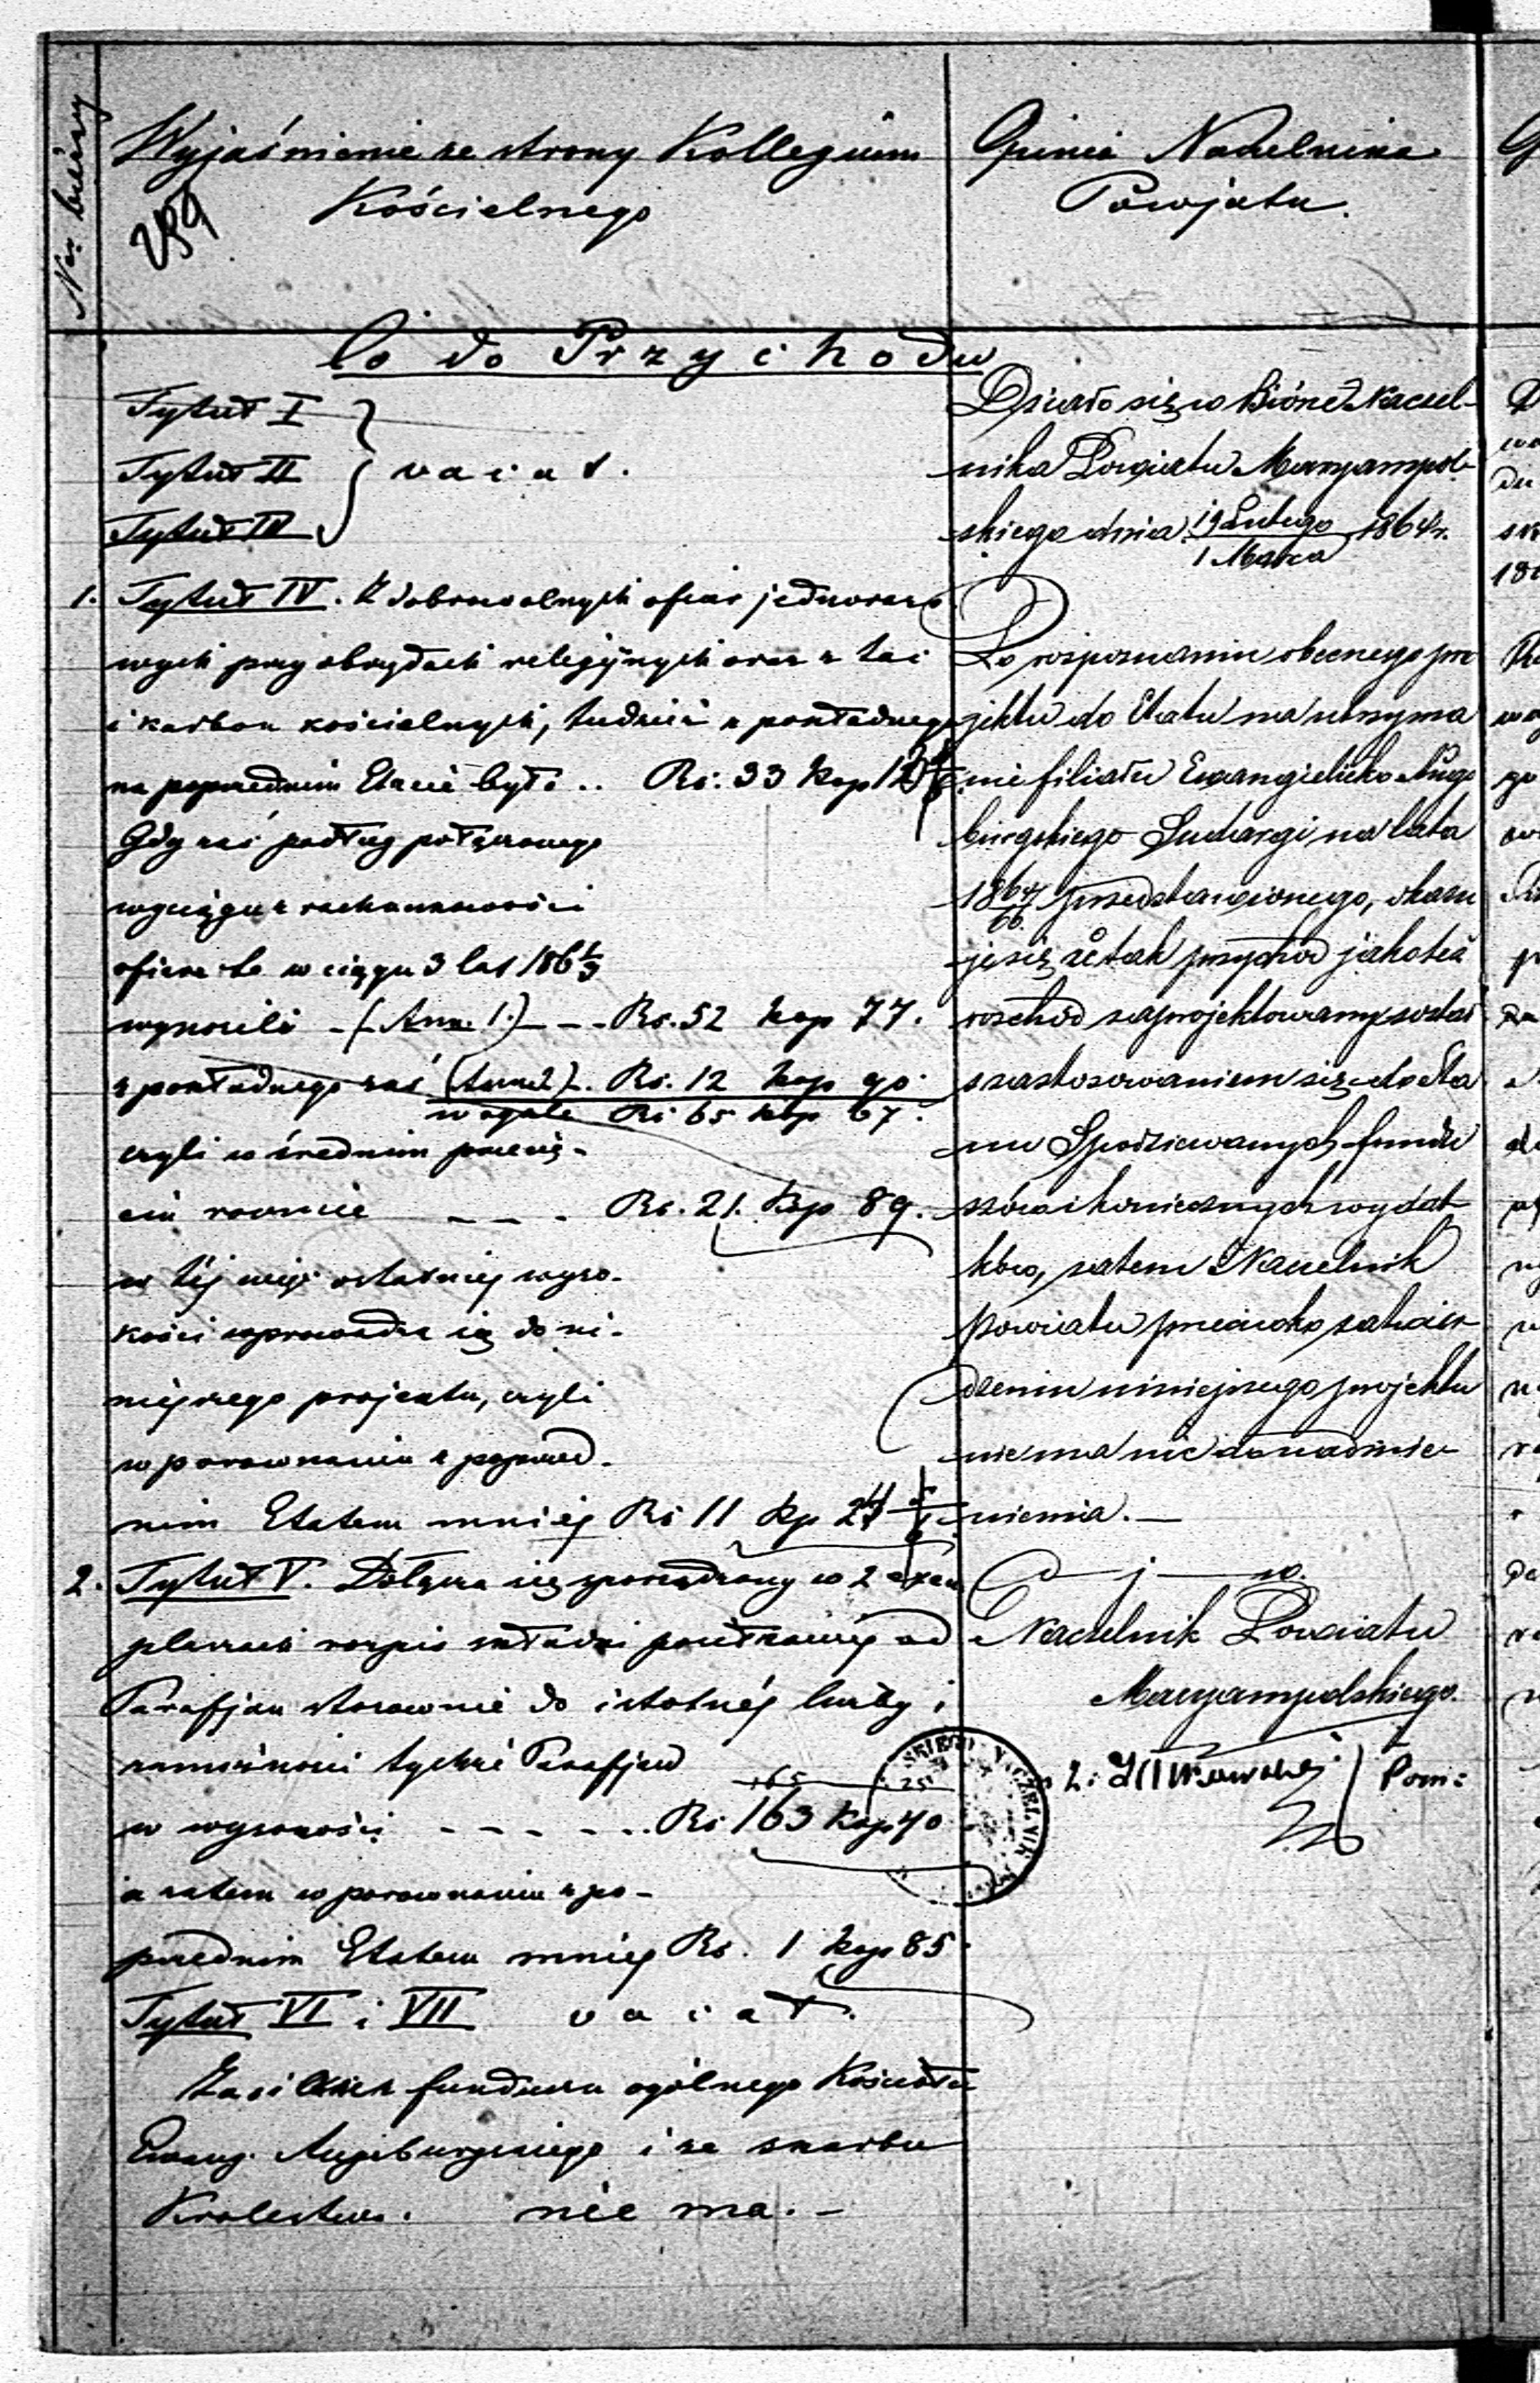 Nr. bieżący
Wyjaśnienie ze strony Kollegium
Kościelnego
259
Opinia Naczelnika
Powjatu.
Co do Przychodu
Tytuł I
Tytuł II
Tytuł III
vacat.
1. Tytuł IV. Z dobrowolnych ofiar jednorazo
wych przy obrzędach religijnych oraz z tac
i karbon kościelnych, tudzież z pokładnego
na poprzednim Etacie było .. Rs. 33 kop 12
Gdy zaś podług połączonego
wyciągu z rachunkowości
ofiara ta w ciągu 3 lat 186 1/3
wynosiła - (Ann. 1.) - - - Rs. 52 kop 77.
z pokładnego zaś (Ann 2). Rs. 12 kop 90.
w ogóle Rs 65 kop 67.
czyli w średnim przecię-
ciu rocznie - - - . Rs. 21. kop 89.
w tej więc ostatniej wyso-
kości wprowadza się do ni-
niejszego projektu, czyli
w porównaniu z poprzed-
nim Etatem mniej Rs 11 kp
2. Tytuł V. Dołącza się sporządzony w 2 exem
plarzach rozpis składki od
Parafjan stosownie do istotnéj liczby i
zamożności tychże Parafjan
165 25
w wysokości - - - - - - Rs 163 kop 40
a zatem w porównaniu z po-
przednim Etatem mniej Rs. 1 kop 85.
Tytuł VI i VII vacat.
Zasiłku z funduszu ogólnego Kościoła
Ewang. Augsburgskiego i ze skarbu
Królestwa. nie ma. -
Działo się w Biórze Naczel-
nika Powiatu Maryampol-
skiego dnia 19 Lutego / 1 Marca 1864 r.
Po rozpoznaniu obecnego pro
jektu do Etatu na utrzyma
nie filiału Ewangielicko Augs
burgskiego Sudargi na lata
1864/66 przedstawionego, okazu
je się że tak przychód jakoteż
rozchód zaprojektowany został
z zastosowaniem się do Sta
nu Spodziewanych fundu
szów i koniecznych wydat
ków, zatem Naczelnik
Powiatu przeciwko zatwier
dzeniu niniejszego projektu
nie ma nic do nadmie
nienia. -
C j w.
Naczelnik Powiatu
Maryampolskiego.
SKIEGO NACZELNIK
Pom: